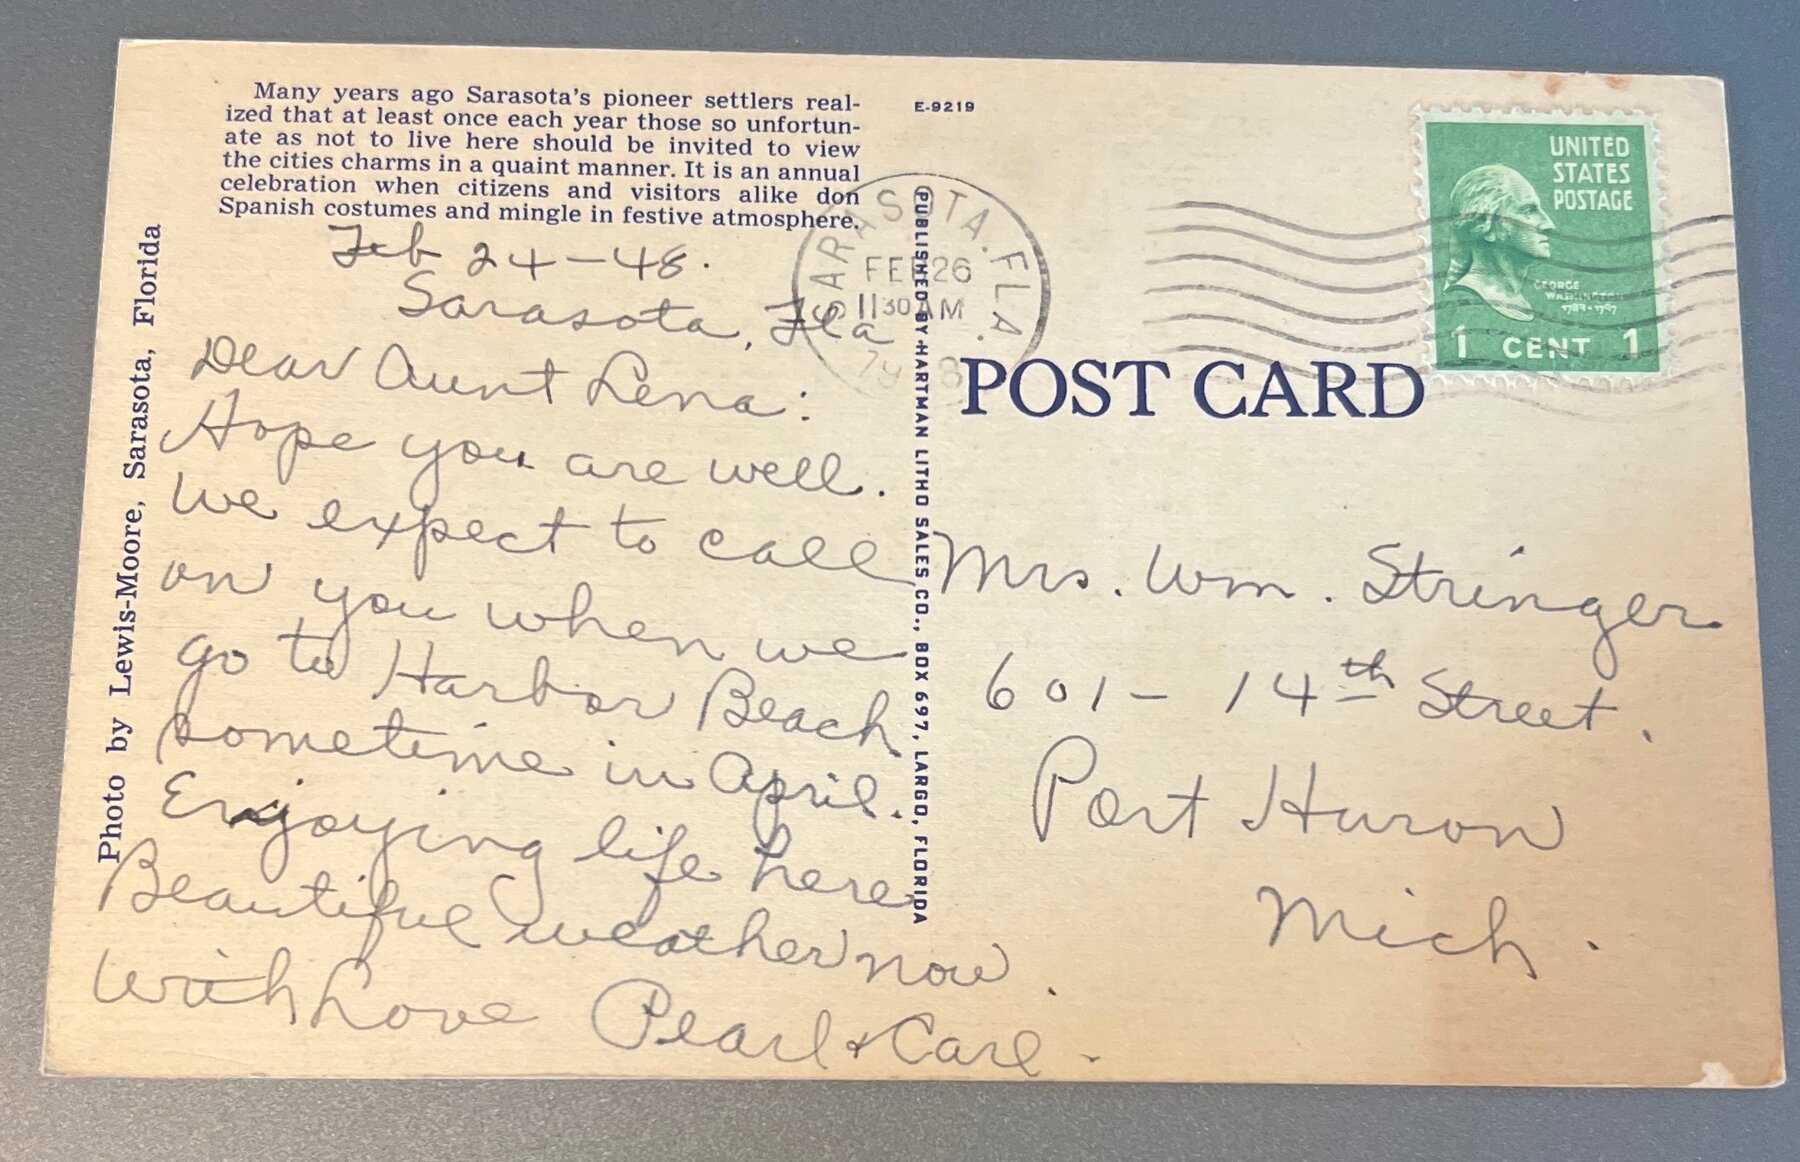 Many years ago Sarasota's pioneer settlers real-
ized that at least once each year those so unfortun-
ate as not to live here should be invited to view
the cities charms in a quaint manner. It is an annual
celebration when citizens and visitors alike don
Spanish costumes and mingle in festive atmosphere.
Photo by Lewis-Moore, Sarasota, Florida
Feb 24-48.
Sarasota, Fla
Dear Aunt Lena:
Hope you are well.
We expect to call
on you when we
go to Harbor Beach
sometime in April.
Enjoying life here
Beautiful weather now.
With Love Pearl & Carl.
PUBLISHED BY HARTMAN LITHO SALES CO., BOX 697, LARGO, FLORIDA
E-9219
SARASOTA. FLA.
FEB 26
11 30 AM
UNITED
STATES
POSTAGE
GEORGE
WASHINGTON
1789-1797
1 CENT 1
POST CARD
Mrs. Wm. Stringer
601-14th Street.
Port Huron
Mich.